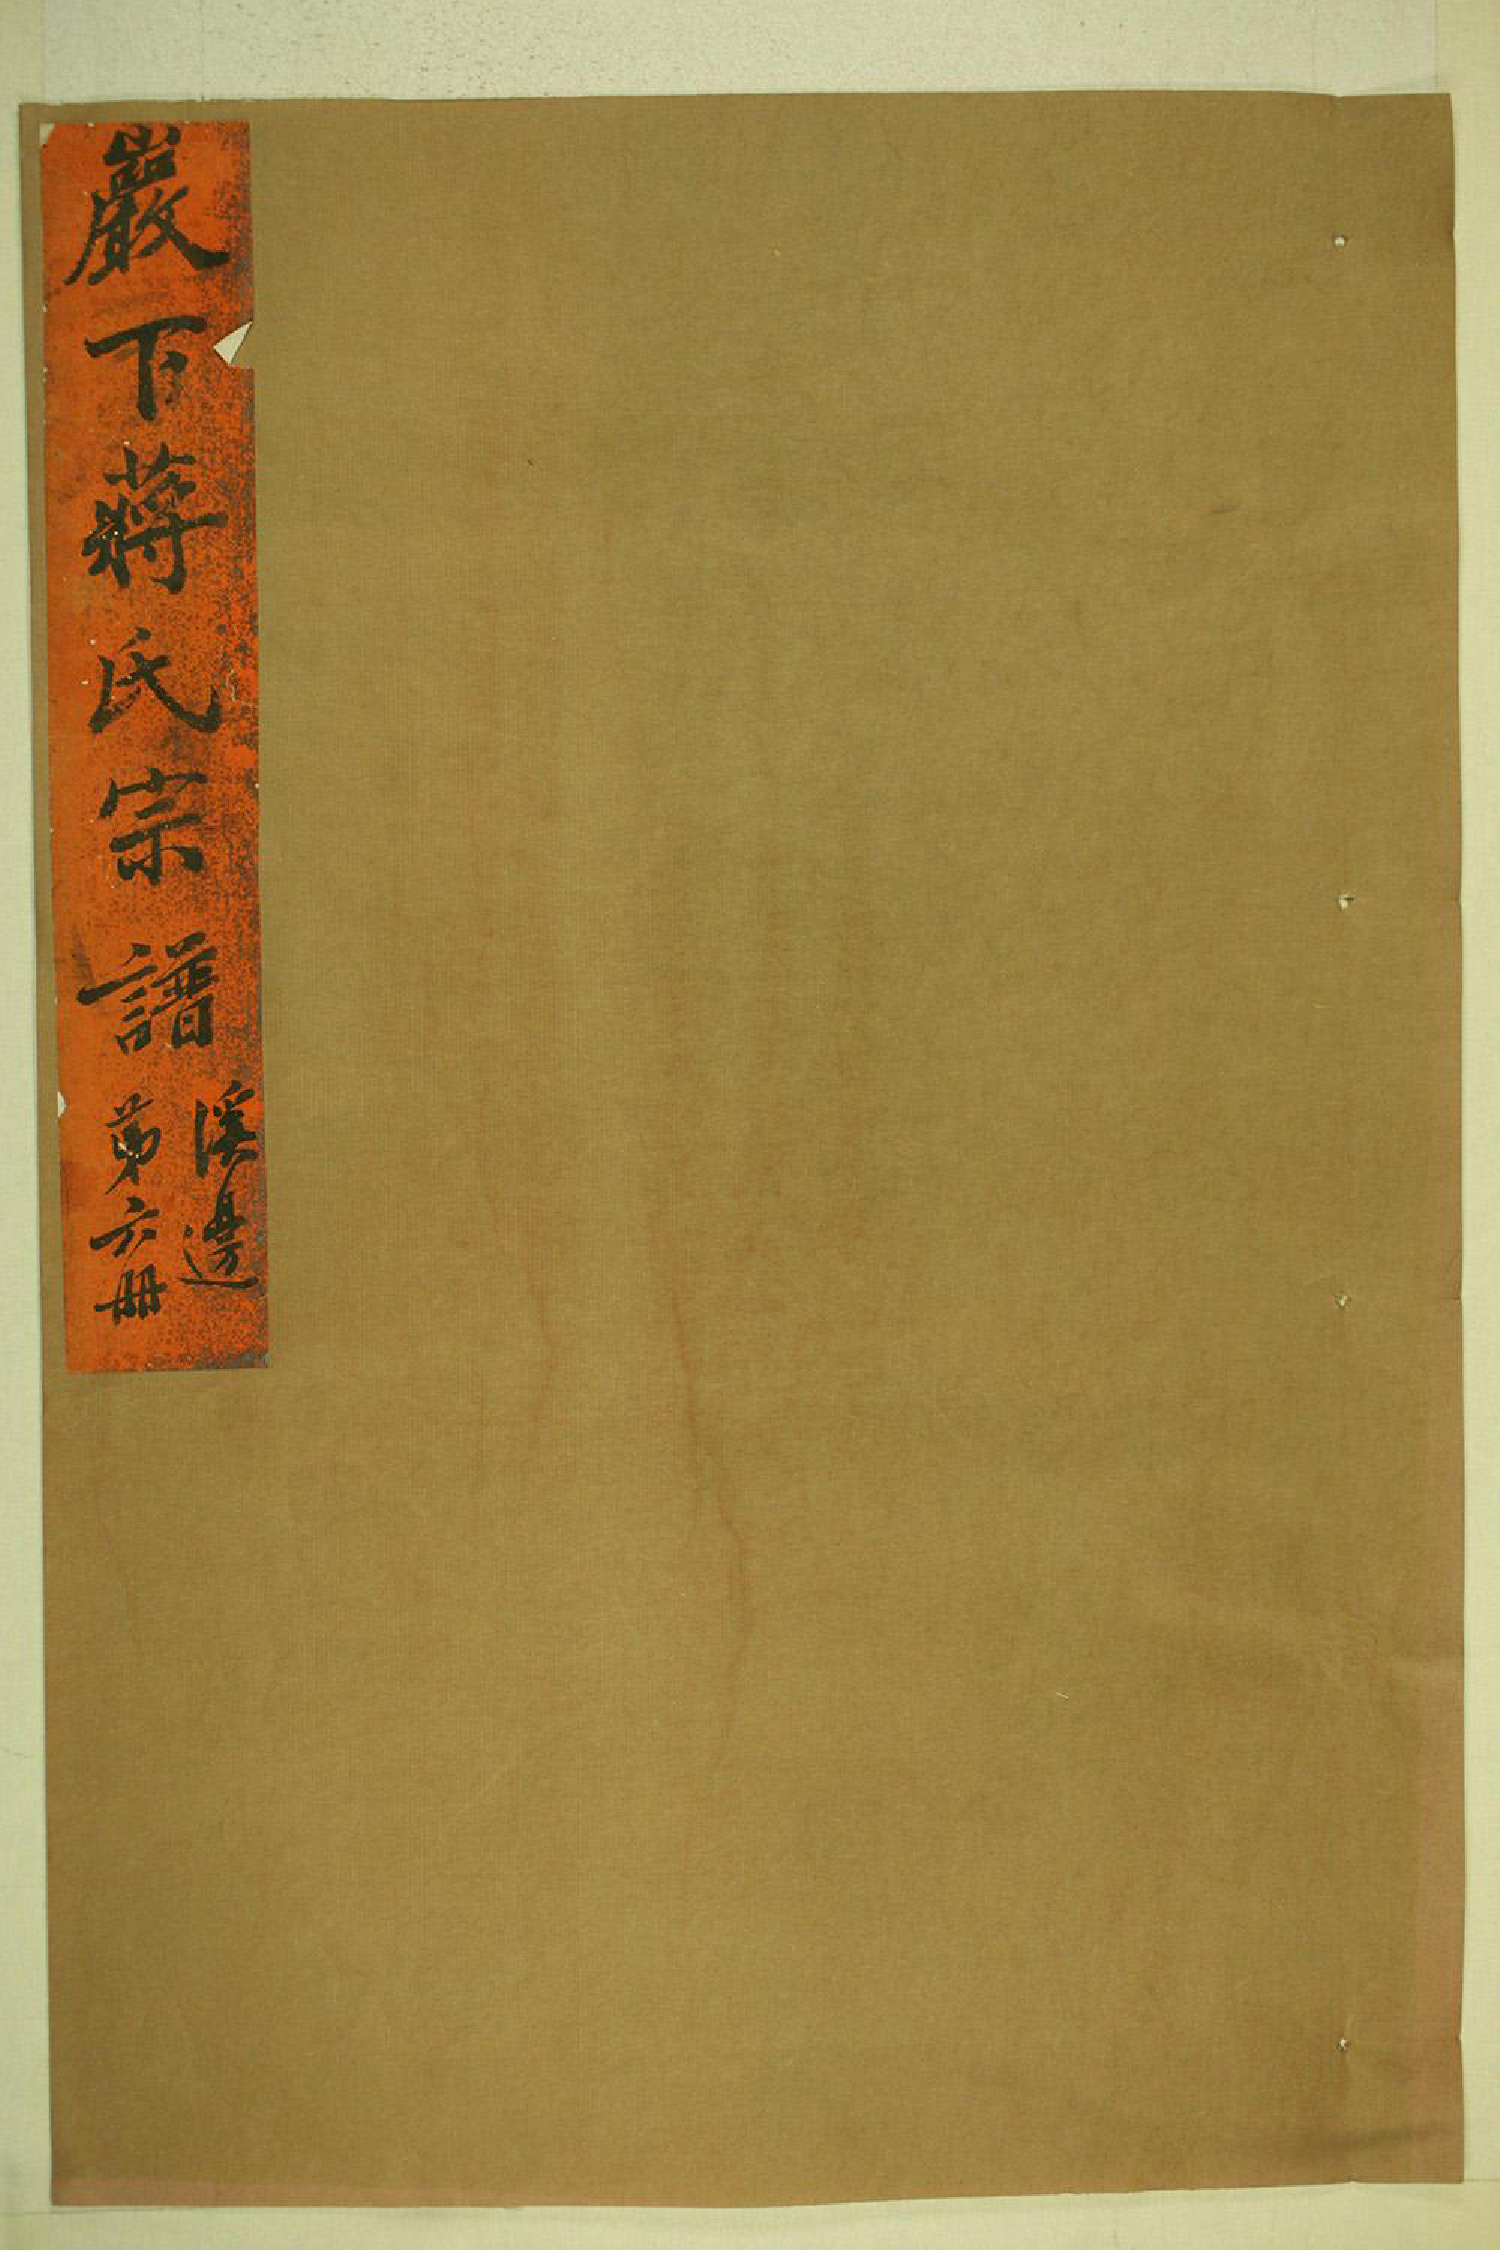 巖下蔣氏宗譜
溪邊
第六册